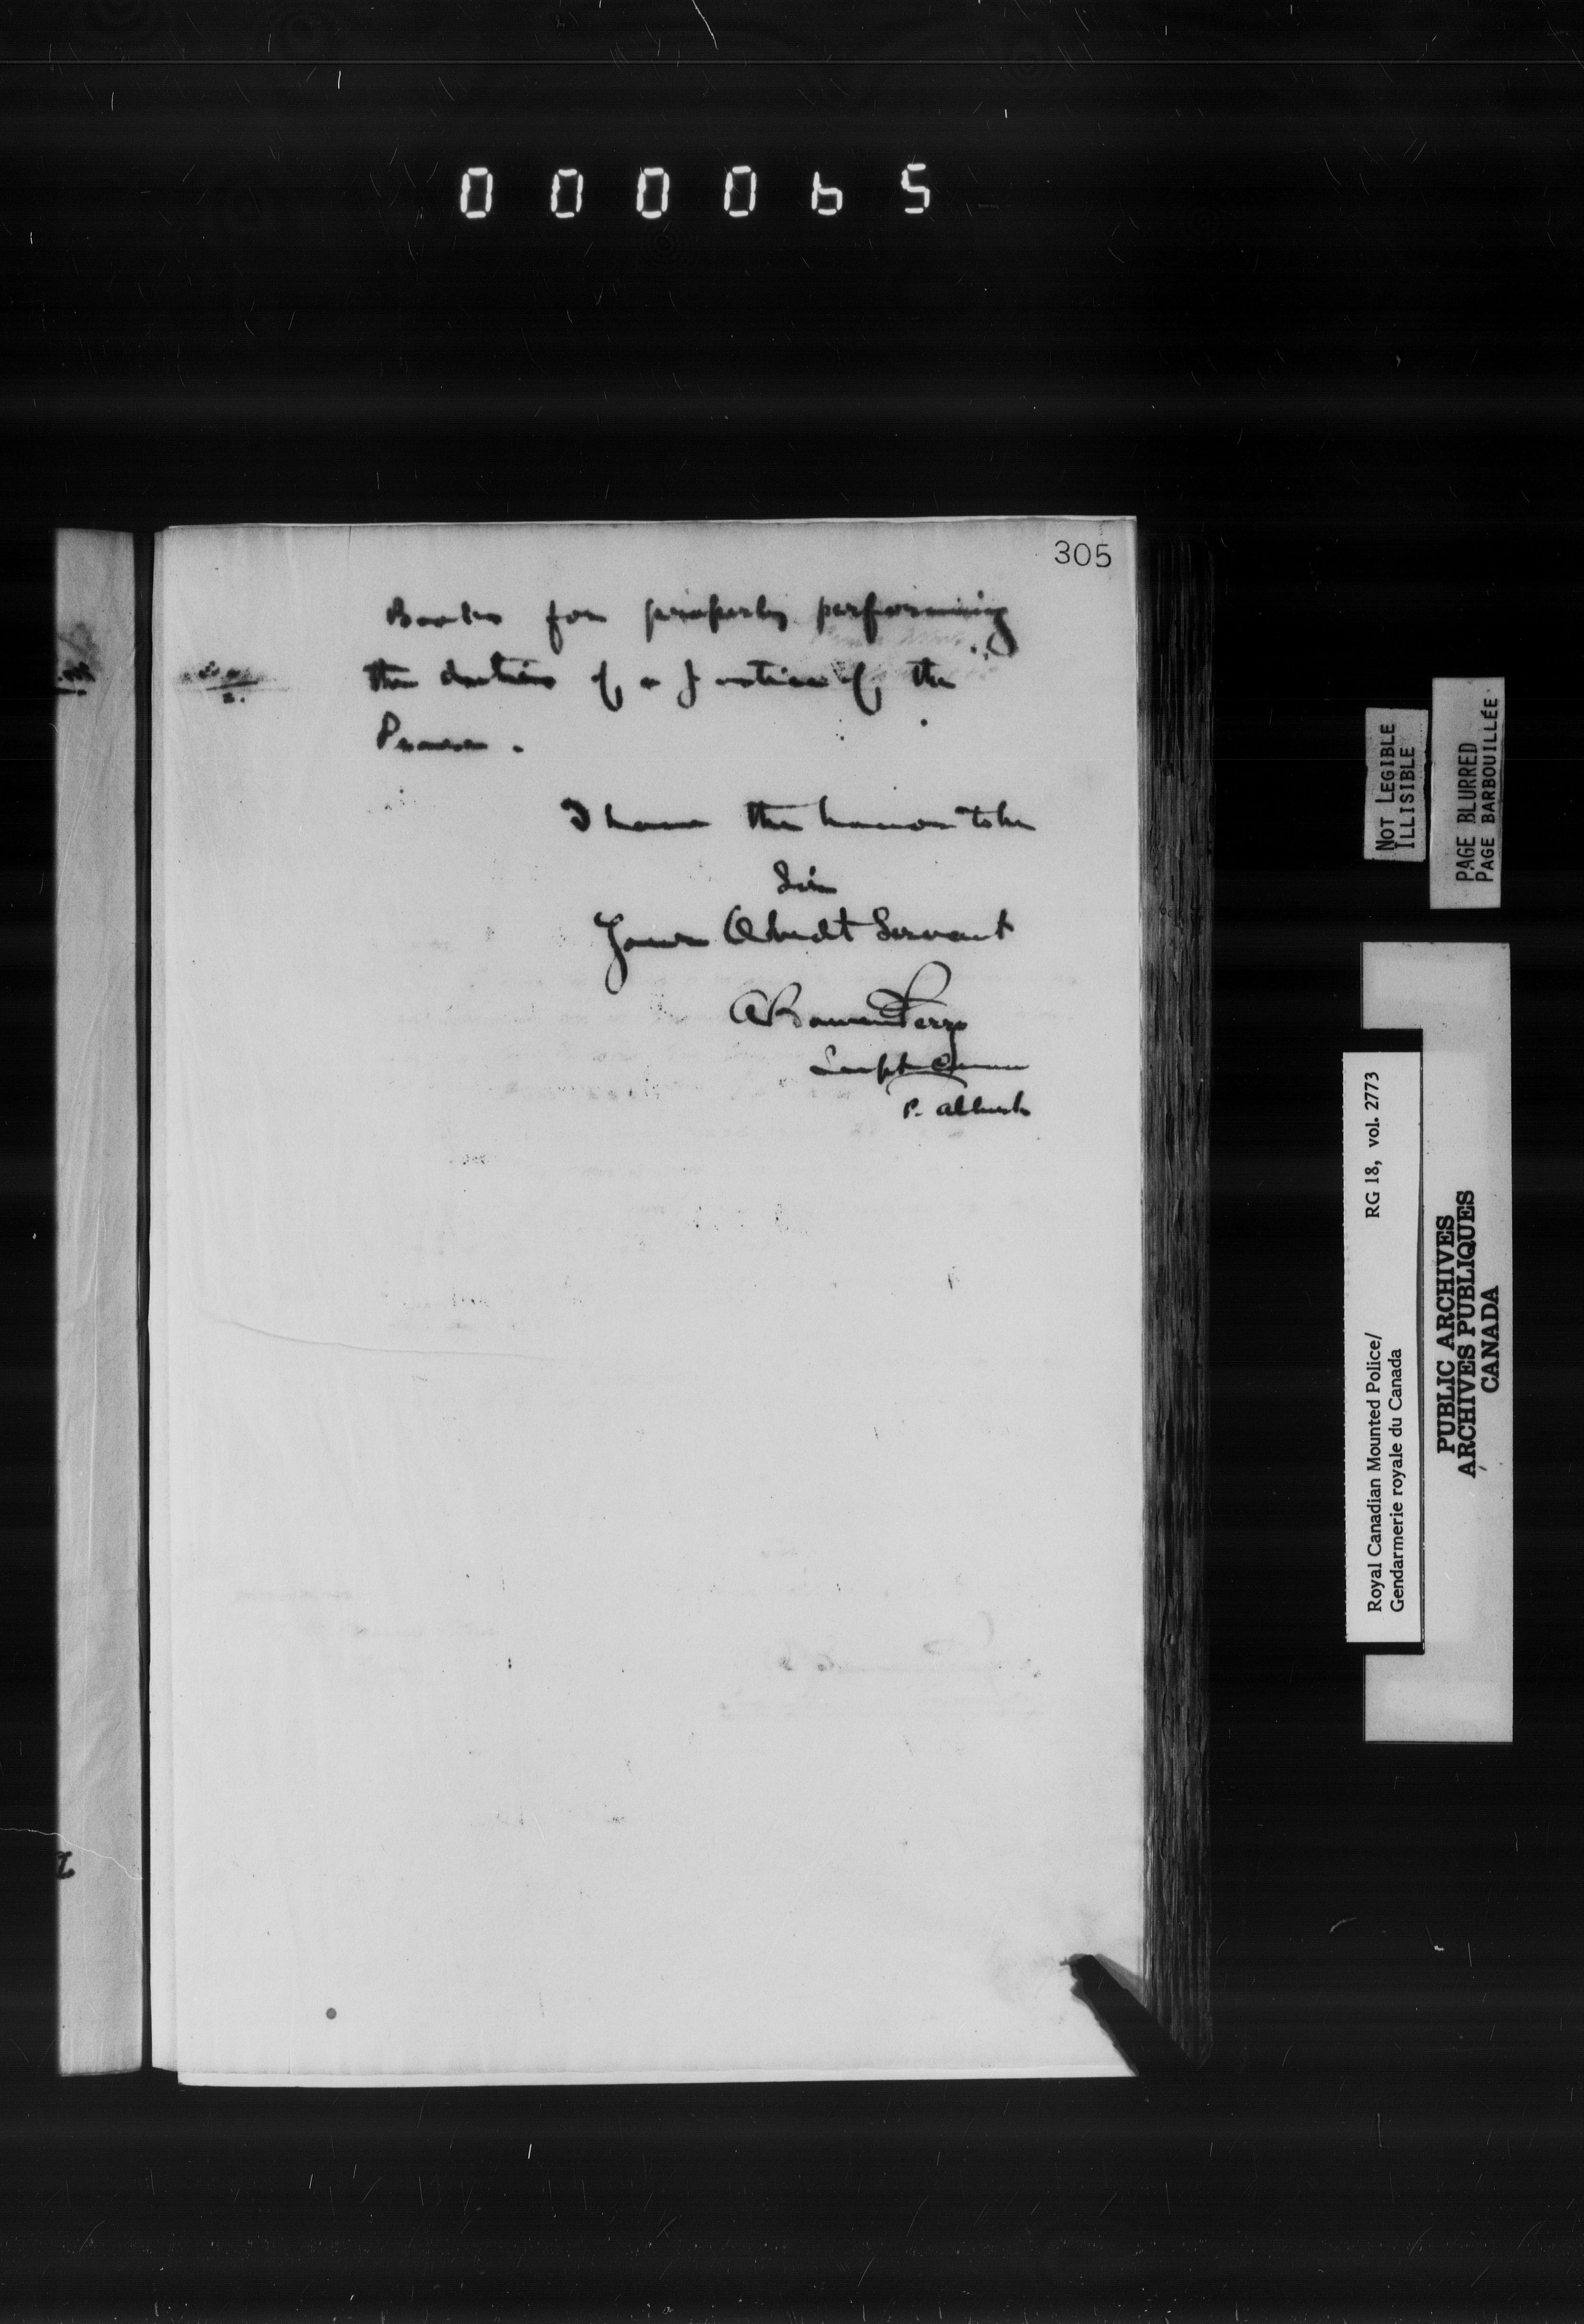 000065
305
Books for properly performing
the duties of a Justice of the
Peace.
I have the honor to be
Sir
Your Obedt Servant
A Bowen Perry
Supt Comm
P. Albert
NOT LEGIBLE
ILLISIBLE
PAGE BLURRED
PAGE BARBOUILLÉE
Royal Canadian Mounted Police/ RG 18, vol. 2773
Gendarmerie royale du Canada
PUBLIC ARCHIVES
ARCHIVES PUBLIQUES
CANADA